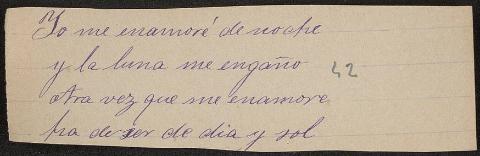 Yo me enamoré de noche
y la luna me engaño 42
otra vez que me enamore
ha de ser de dia y sol